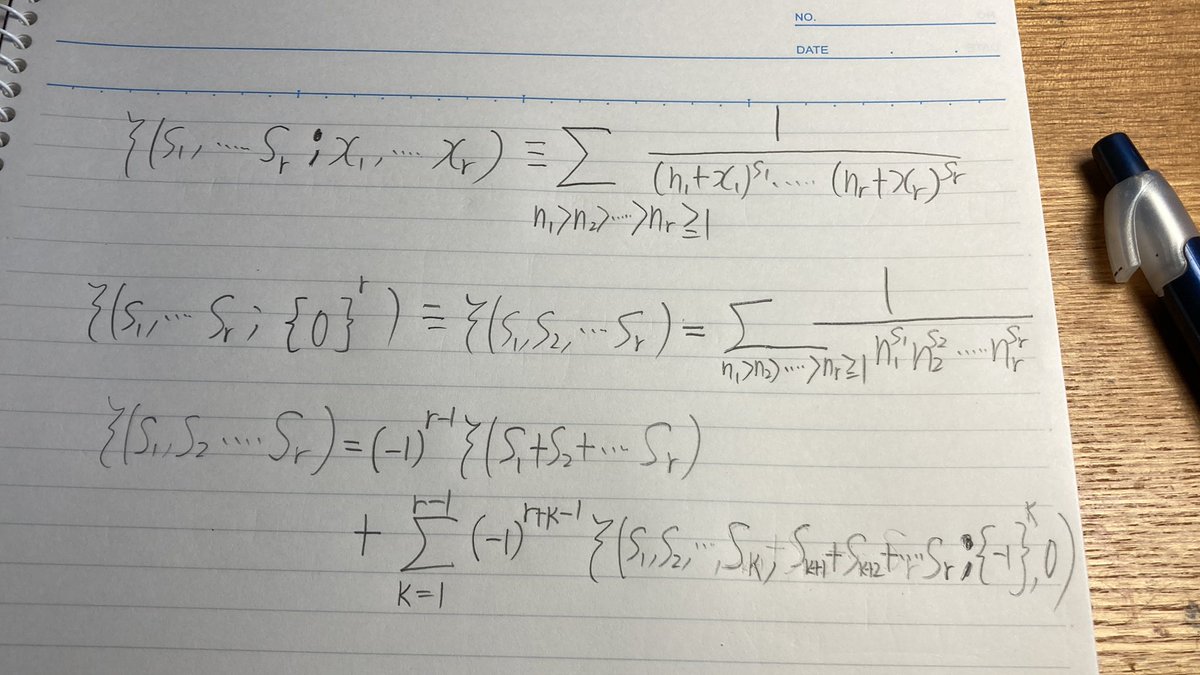 NO.
DATE
ζ(S₁, ‥‥ Sᵣ ; x₁, ‥‥ xᵣ) ≡ Σ_{n₁>n₂>‥‥>nᵣ≧1} 1/((n₁+x₁)^{S₁} ‥‥‥ (nᵣ+xᵣ)^{Sᵣ})
ζ(S₁, ‥‥ Sᵣ ; {0}^r) ≡ ζ(S₁, S₂, ‥‥ Sᵣ) = Σ_{n₁>n₂>‥‥>nᵣ≧1} 1/(n₁^{S₁} n₂^{S₂} ‥‥‥ nᵣ^{Sᵣ})
ζ(S₁, S₂ ‥‥ Sᵣ) = (-1)^{r-1} ζ(S₁+S₂+‥‥ Sᵣ)
+ Σ_{K=1}^{r-1} (-1)^{r+K-1} ζ(S₁, S₂, ‥‥, S_K, S_{K+1}+S_{K+2}+‥‥ Sᵣ ; {-1}^K, 0)